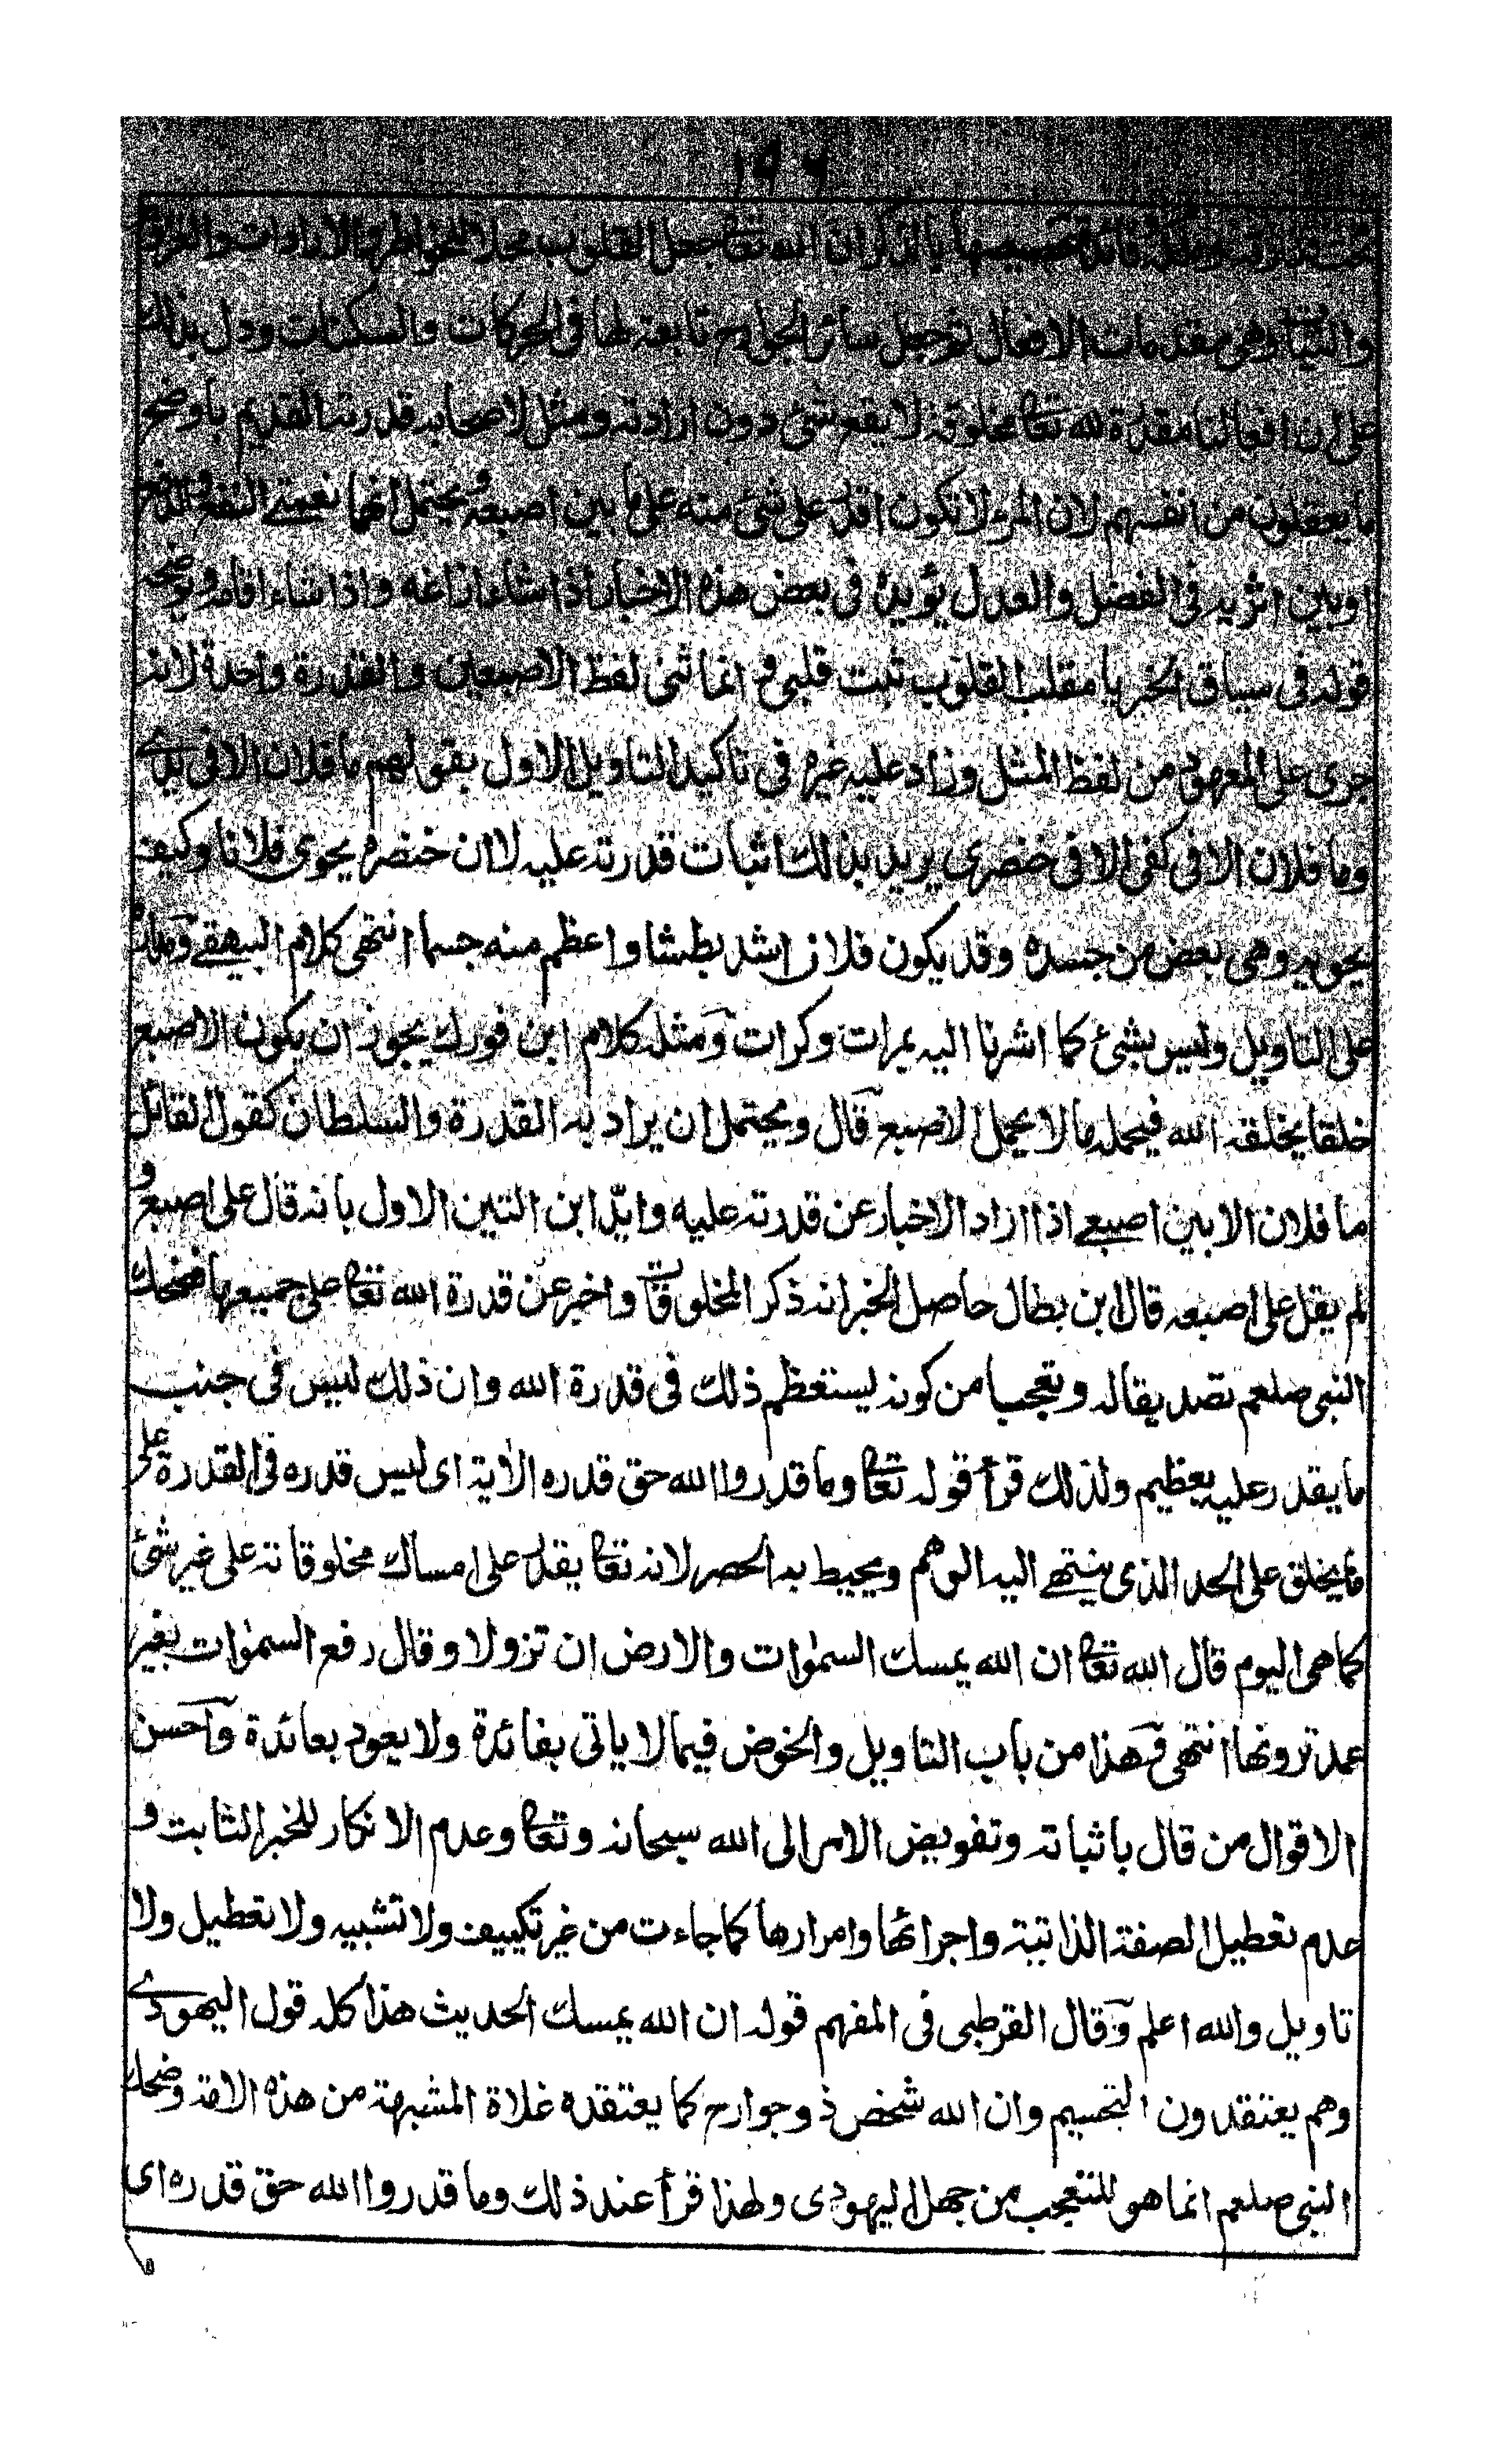 ١٩٦
تحت قدرته وملكه فائدة تخصيصها بالذكر ان الله تعا جعل القلوب محلا للخواطر والارادات والعزوم
والنيات وهى مقدمات الافعال ثم جعل سائر الجوارح تابعة لها فى الحركات والسكنات ودل بذلك
على ان افعالنا مقدرة لله تعا مخلوقة لا يقع شئ دون ارادته ومثل لاصحابه قدرته القديمة باوضح
ما يعقلون من انفسهم لان المرء لا يكون اقدر على شئ منه على ما بين اصبعيه ويحتمل انهما نعمتى النفع والدفع
او بين اثريه فى الفضل والعدل يؤيده فى بعض هذه الاخبار اذا شاء ازاغه واذا شاء اقامه ويوضحه
قوله فى سياق الخبر يا مقلب القلوب ثبت قلبى وانما ثنى لفظ الاصبعين والقدرة واحدة لانه
جرى على المعهود من لفظ المثل وزاد عليه غيره فى تاكيد التاويل الاول بقولهم ما فلان الا فى يدى
وما فلان الا فى كفى الا فى خنصرى يريد بذلك اثبات قدرته عليه لا ان خنصره يحوى فلانا وكيف
يحويه وهى بعض من جسده وقد يكون فلان اشد بطشا واعظم منه جسما انتهى كلام البيهقے ومداره
على التاويل وليس بشئ كما اشرنا اليه بمرات وكرات ومثله كلام ابن فورك يجوز ان يكون الاصبع
خلقا يخلقه الله فيحمله ما لا يحمل الاصبع قال ويحتمل ان يراد به القدرة والسلطان كقول القائل
ما فلان الا بين اصبعے اذا اراد الاخبار عن قدرته عليه وايّد ابن التين الاول بانه قال على اصبع و
لم يقل على اصبعه قال ابن بطال حاصل الخبر انه ذكر المخلوقات واخبر عن قدرة الله تعا على جميعها فضحك
النبى صلعم تصديقا له وتعجبا من كونه يستعظم ذلك فى قدرة الله وان ذلك ليس فى جنب
ما يقدر عليه بعظيم ولذلك قرأ قوله تعا وما قدروا الله حق قدره الاٰية اى ليس قدره فى القدرة على
ما يخلق على الحد الذى ينتهے اليه الوهم ويحيط به الحصر لانه تعا يقدر على امساك مخلوقاته على غير شئ
كما هى اليوم قال الله تعا ان الله يمسك السمٰوات والارض ان تزولا وقال رفع السمٰوات بغير
عمد ترونها انتهى وهذا من باب التاويل والخوض فيما لا ياتى بفائدة ولا يعود بعائدة واحسن
الاقوال من قال باثباته وتفويض الامر الى الله سبحانه وتعا وعدم الانكار للخبر الثابت و
عدم تعطيل الصفة الذاتية واجرائها وامرارها كما جاءت من غير تكييف ولا تشبيه ولا تعطيل ولا
تاويل والله اعلم وقال القرطبى فى المفهم قوله ان الله يمسك الحديث هذا كله قول اليهودے
وهم يعتقدون التجسيم وان الله شخص ذو جوارح كما يعتقده غلاة المشبهة من هذه الامة وضحك
النبى صلعم انما هو للتعجب من جهل اليهودى ولهذا قرأ عند ذلك وما قدروا الله حق قدره اى